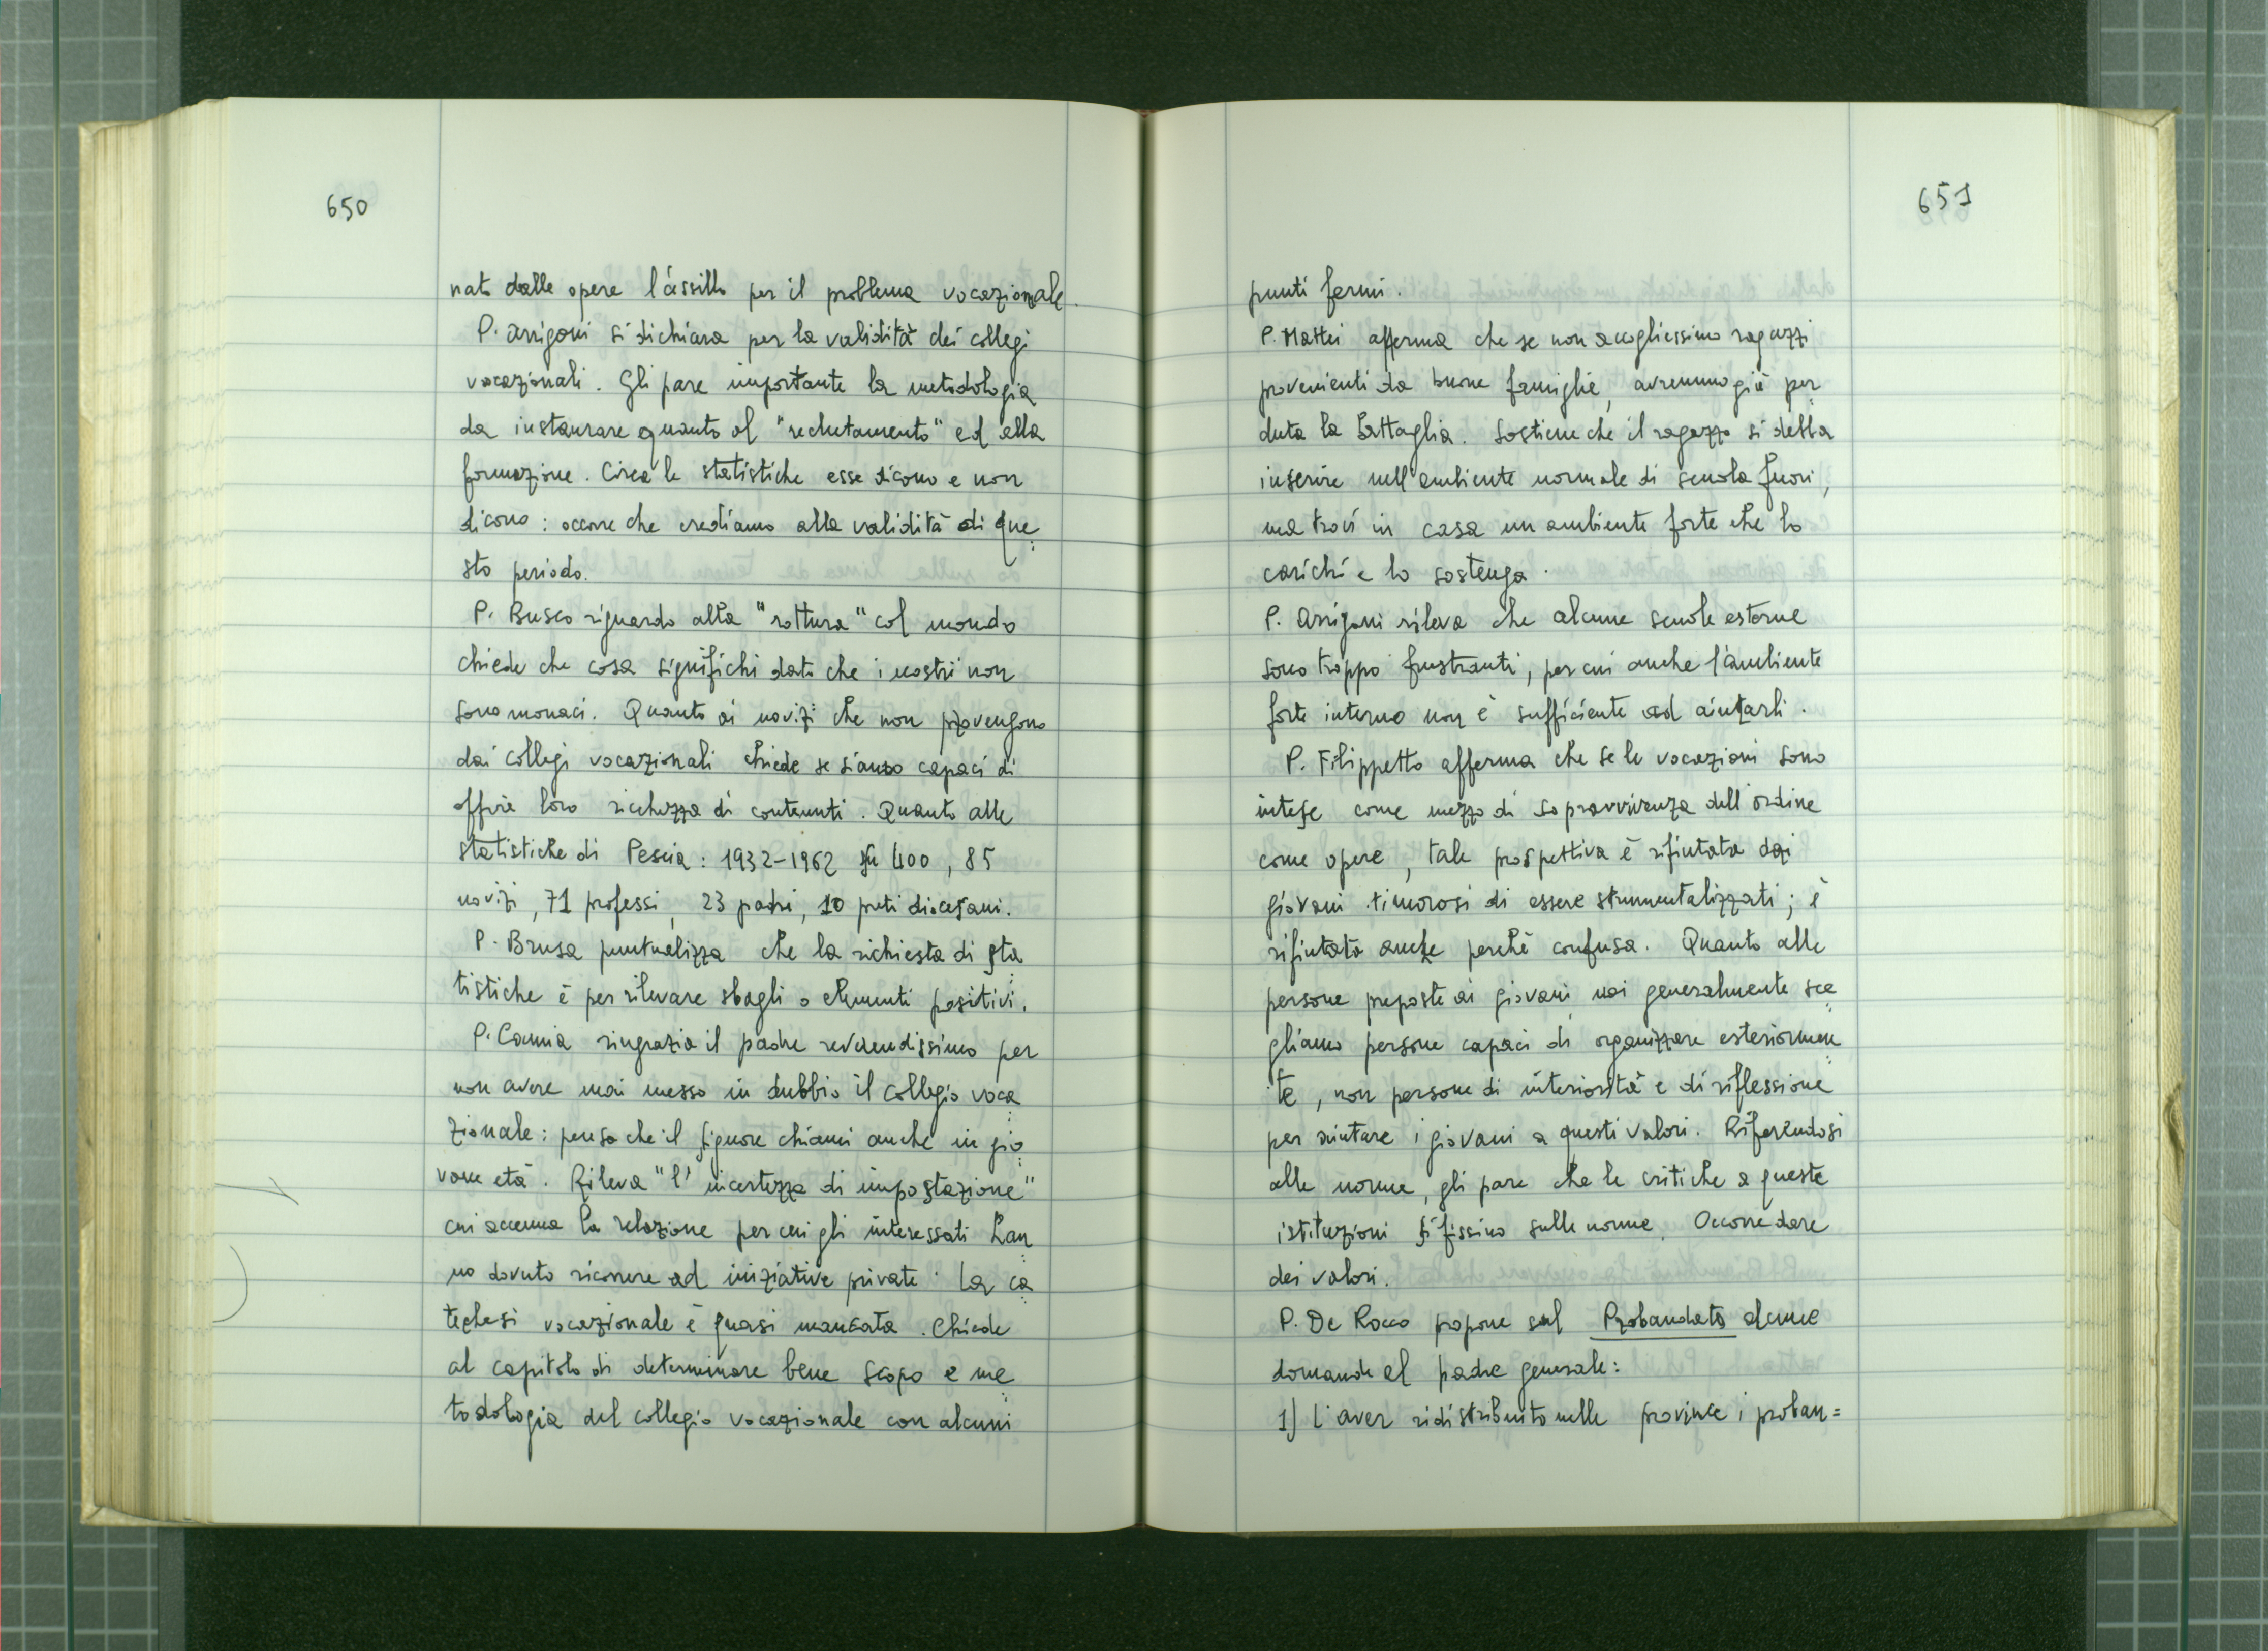 650
nato dalle opere l'assillo per il problema vocazionale.
P. Arrigoni si dichiara per la validità dei collegi
vocazionali. Gli pare importante la metodologia
da instaurare quanto al "reclutamento" ed alla
formazione. Circa le statistiche esse dicono e non
dicono: occorre che crediamo alla validità di que=
sto periodo.
P. Busco riguardo alla "rottura" col mondo
chiede che cosa significhi dato che i nostri non
sono monaci. Quanto ai novizi che non provengono
dai collegi vocazionali chiede se siamo capaci di
offrire loro ricchezza di contenuti. Quanto alle
statistiche di Pescia: 1932-1962 su 400, 85
novizi, 71 professi, 23 padri, 10 preti diocesani.
P. Brusa puntualizza che la richiesta di sta=
tistiche è per rilevare sbagli o elementi positivi.
P. Camia ringrazia il padre reverendissimo per
non avere mai messo in dubbio il collegio voca=
zionale: pensa che il Signore chiami anche in gio=
vane età. Rileva "l'incertezza di impostazione"
cui accenna la relazione per cui gli interessati han=
no dovuto ricorrere ad iniziative private. La ca=
techesi vocazionale è quasi mancata. Chiede
al capitolo di determinare bene scopo e me=
todologia del collegio vocazionale con alcuni
651
punti fermi.
P. Mattei afferma che se non accogliessimo ragazzi
provenienti da buone famiglie, avremmo già per=
duta la battaglia. Sostiene che il ragazzo si debba
inserire nell'ambiente normale di scuola fuori,
ma trovi in casa un ambiente forte che lo
carichi e lo sostenga.
P. Arrigoni rileva che alcune scuole esterne
sono troppo frustranti, per cui anche l'ambiente
forte interno non è sufficiente ad aiutarli.
P. Filippetto afferma che se le vocazioni sono
intese come mezzo di sopravvivenza dell'ordine
come opere, tale prospettiva è rifiutata dai
giovani timorosi di essere strumentalizzati; è
rifiutata anche perchè confusa. Quanto alle
persone preposte ai giovani, noi generalmente sce=
gliamo persone capaci di organizzare esteriormen=
te, non persone di interiorità e di riflessione
per aiutare i giovani a questi valori. Riferendosi
alle norme, gli pare che le critiche a queste
istituzioni si fissino sulle norme. Occorre dare
dei valori.
P. De Rocco propone sul Probandato alcune
domande al padre generale:
1) L'aver ridistribuito nelle province i proban=